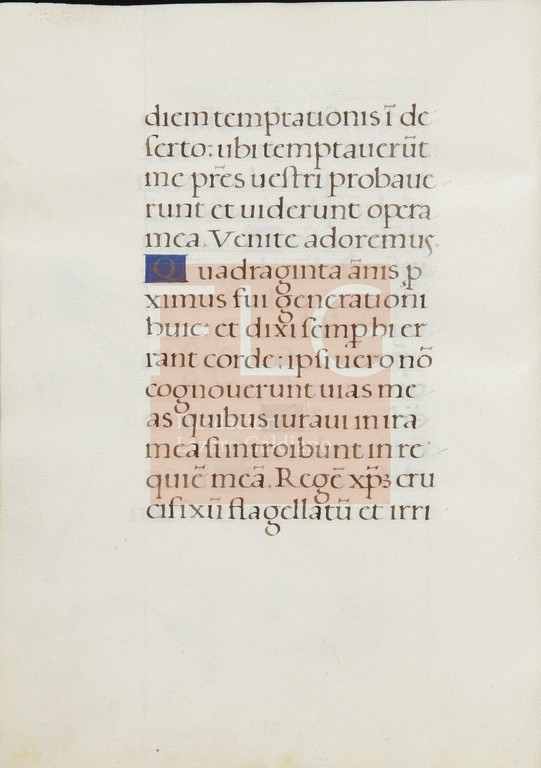 diem temptationis ī de
serto: ubi temptauerūt
me prēs uestri probaue
runt et uiderunt opera
mea. Venite adoremus.
Quadraginta ānis ꝓ
ximus fui generationi
huic: et dixi semꝑ hi er
rant corde: ipsi uero nō
cognouerunt uias me
as quibus iuraui in ira
mea si introibunt in re
quiē meā. Regē xp̄ꝫ cru
cifixū flagellatū et irri
FLC
Lázaro Galdiano